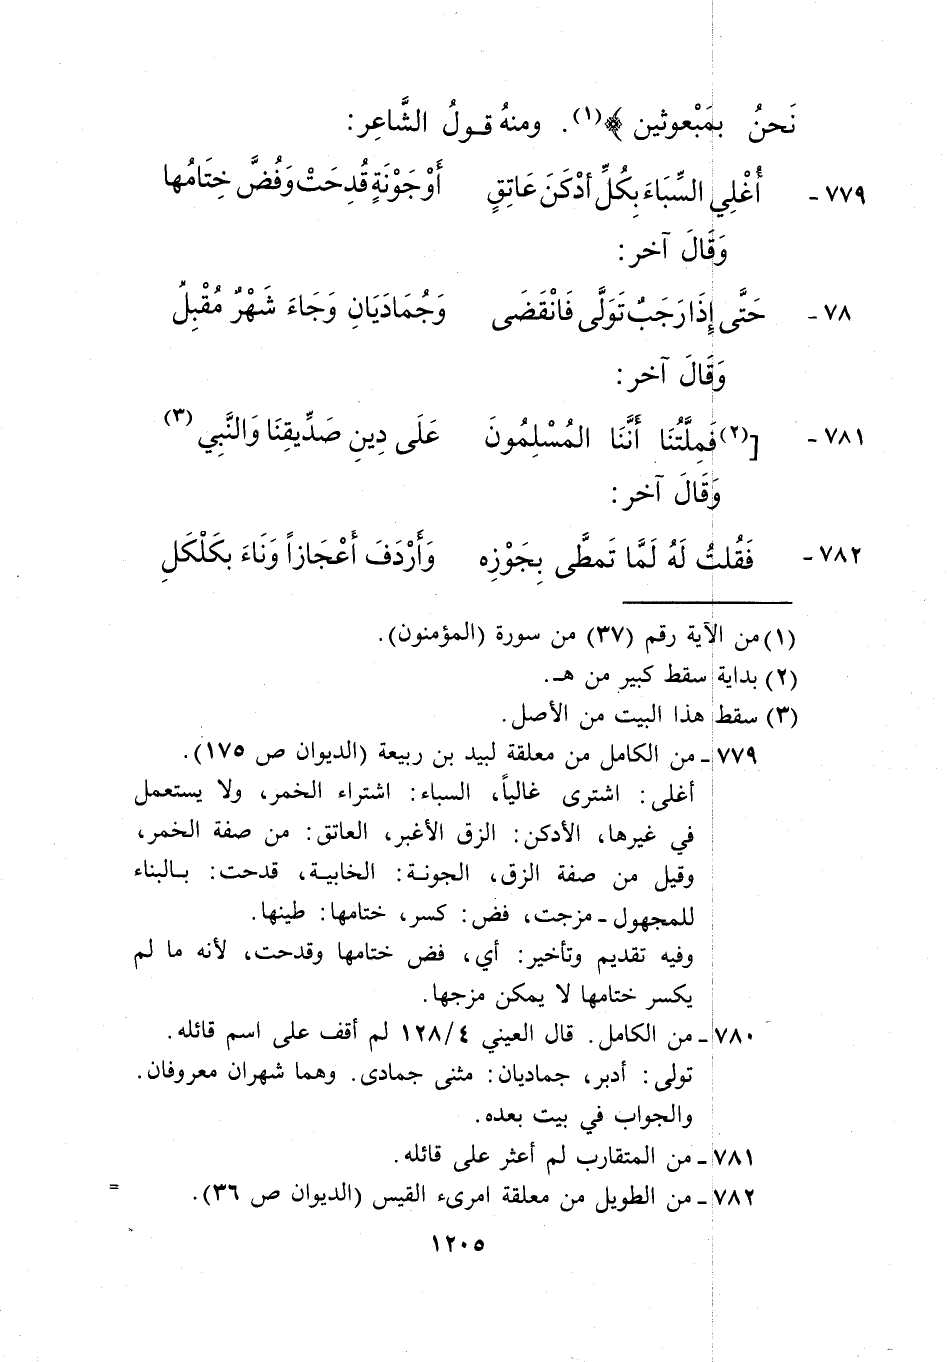 نَحنُ بمَبْعوثين ﴾(١). ومنهُ قولُ الشَّاعِر:
٧٧٩ - أُغْلِي السِّبَاءَ بِكُلِّ أدْكَنَ عَاتِقٍ أَوْ جَوْنَةٍ قُدِحَتْ وَفُضَّ خِتَامُها
وَقَالَ آخر:
٧٨ - حَتَّى إِذَا رَجَبٌ تَوَلَّى فَانْقَضَى وَجُمَادَيَانِ وَجَاءَ شَهْرٌ مُقْبِلُ
وَقَالَ آخر:
٧٨١ - [(٢)فَمِلَّتُنَا أَنَّنَا المُسْلِمُونَ عَلَى دِينِ صَدِّيقِنَا وَالنَّبِي (٣)
وَقَالَ آخر:
٧٨٢ - فَقُلتُ لَهُ لَمَّا تَمطَّى بِجَوْزِه وَأَرْدَفَ أَعْجَازاً وَنَاءَ بكَلْكَلِ
(١) من الآية رقم (٣٧) من سورة (المؤمنون).
(٢) بداية سقط كبير من هـ.
(٣) سقط هذا البيت من الأصل.
٧٧٩ - من الكامل من معلقة لبيد بن ربيعة (الديوان ص ١٧٥).
أغلى: اشترى غالياً، السباء: اشتراء الخمر، ولا يستعمل
في غيرها، الأدكن: الزق الأغبر، العاتق: من صفة الخمر،
وقيل من صفة الزق، الجونة: الخابية، قدحت: بالبناء
للمجهول - مزجت، فض: كسر، ختامها: طينها.
وفيه تقديم وتأخير: أي، فض ختامها وقدحت، لأنه ما لم
يكسر ختامها لا يمكن مزجها.
٧٨٠ - من الكامل. قال العيني ١٢٨/٤ لم أقف على اسم قائله.
تولى: أدبر، جماديان: مثنى جمادى. وهما شهران معروفان.
والجواب في بيت بعده.
٧٨١ - من المتقارب لم أعثر على قائله.
٧٨٢ - من الطويل من معلقة امرىء القيس (الديوان ص ٣٦). =
١٢٠٥